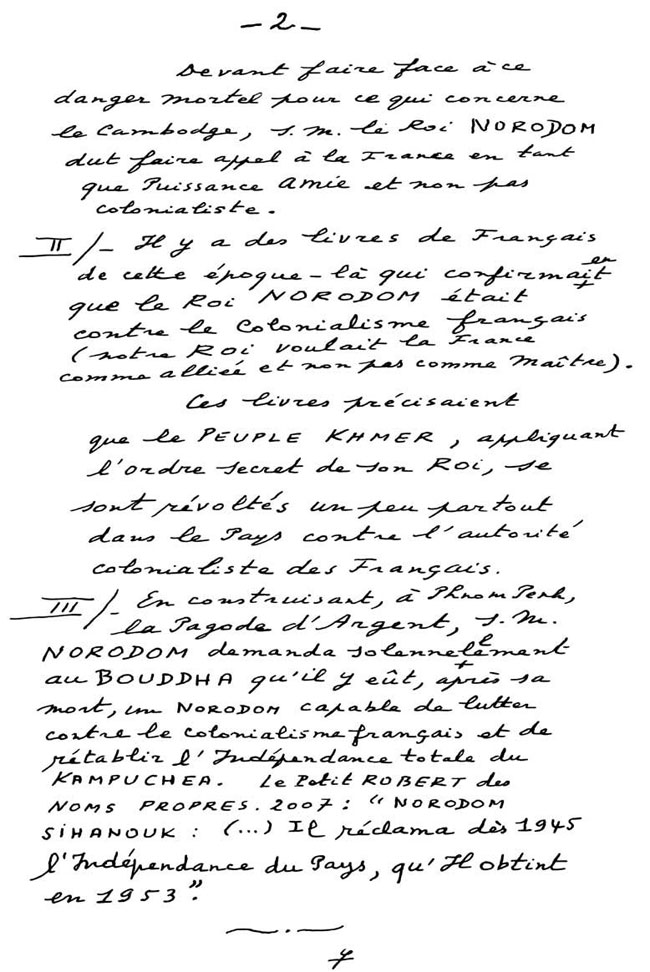 - 2 -
Devant faire face à ce
danger mortel pour ce qui concerne
le Cambodge, S.M. le Roi NORODOM
dut faire appel à la France en tant
que Puissance Amie et non pas
colonialiste.
II/- Il y a des livres de Français
de cette époque-là qui confirmaient
que le Roi NORODOM était
contre le Colonialisme français
(notre Roi voulait la France
comme alliée et non pas comme Maître).
Ces livres précisaient
que le PEUPLE KHMER, appliquant
l'ordre secret de son Roi, se
sont révoltés un peu partout
dans le Pays contre l'autorité
colonialiste des Français.
III/- En construisant, à Phnom Penh,
la Pagode d'Argent, S.M.
NORODOM demanda solennellement
au BOUDDHA qu'il y eût, après sa
mort, un NORODOM capable de lutter
contre le colonialisme français et de
rétablir l'Indépendance totale du
KAMPUCHEA. Le Petit ROBERT des
NOMS PROPRES. 2007 : "NORODOM
SIHANOUK : (...) Il réclama dès 1945
l'Indépendance du Pays, qu'Il obtint
en 1953".